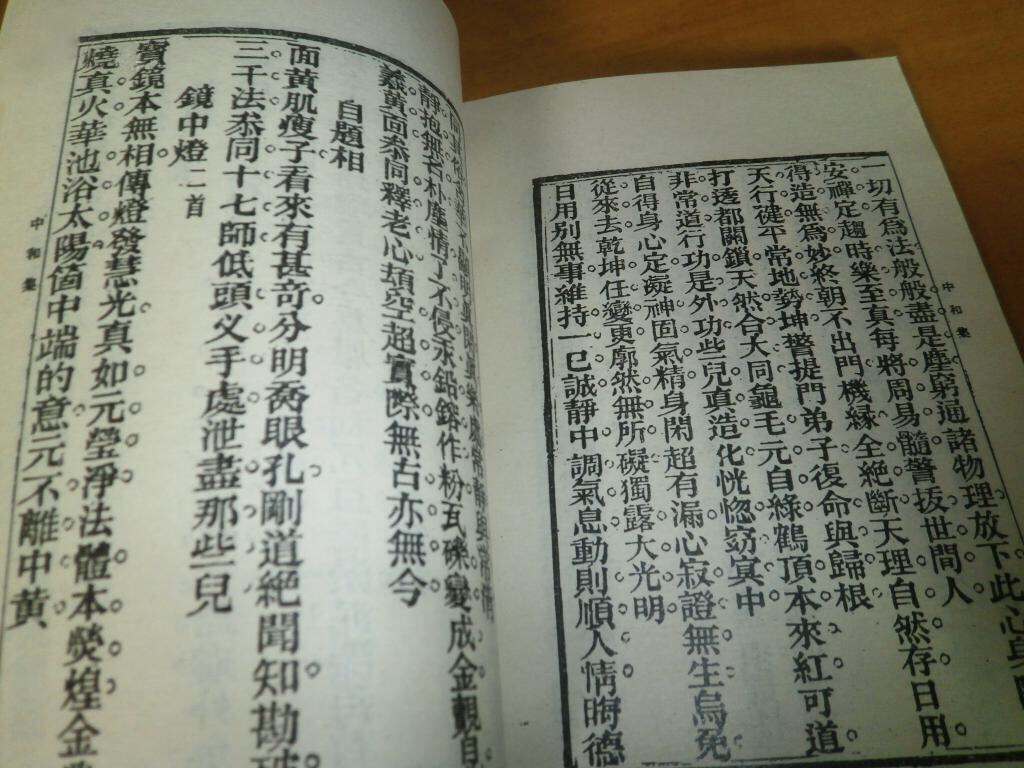 一切有爲法般般盡是塵窮通諸物理放下此心真
安禪定趨時樂至真每將周易髓警拔世間人
得造無爲妙終朝不出門機緣全絕斷天理自然存日用
天行健平常地勢坤警提門弟子復命與歸根
打透都關鎖天然合大同龜毛元自綠鶴頂本來紅可道
非常道行功是外功些兒直造化恍惚窈冥中
自得身心定凝神固氣精身閑超有漏心寂證無生烏兔
從來去乾坤任變更廓然無所礙獨露大光明
日用別無事維持一巳誠靜中調氣息動則順人情晦德
中和集
靜抱無名朴塵情了不侵汞鉛鎔作粉瓦礫變成金覿自
義黃面叅同釋老心頑空超實際無古亦無今
自題相
面黃肌瘦子看來有甚奇分明喬眼孔剛道絕聞知勘破
三千法叅同十七師低頭叉手處泄盡那些兒
鏡中燈二首
寶鏡本無相傳燈發慧光真如元瑩淨法體本熒煌金
燒真火華池浴太陽箇中端的意元不離中黃
中和集